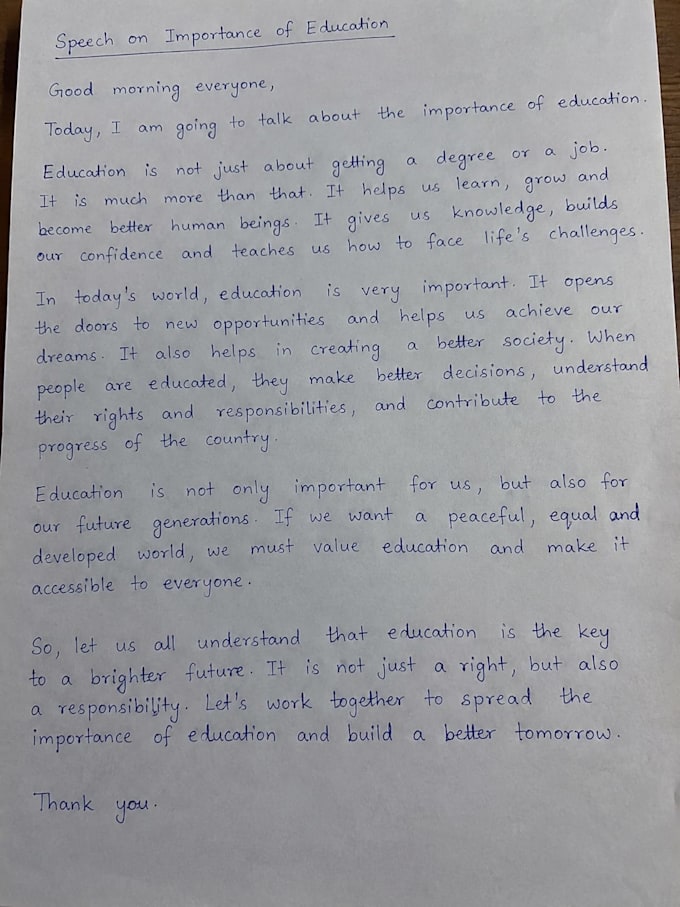 Speech on Importance of Education
Good morning everyone,
Today, I am going to talk about the importance of education.
Education is not just about getting a degree or a job.
It is much more than that. It helps us learn, grow and
become better human beings. It gives us knowledge, builds
our confidence and teaches us how to face life's challenges.
In today's world, education is very important. It opens
the doors to new opportunities and helps us achieve our
dreams. It also helps in creating a better society. When
people are educated, they make better decisions, understand
their rights and responsibilities, and contribute to the
progress of the country.
Education is not only important for us, but also for
our future generations. If we want a peaceful, equal and
developed world, we must value education and make it
accessible to everyone.
So, let us all understand that education is the key
to a brighter future. It is not just a right, but also
a responsibility. Let's work together to spread the
importance of education and build a better tomorrow.
Thank you.